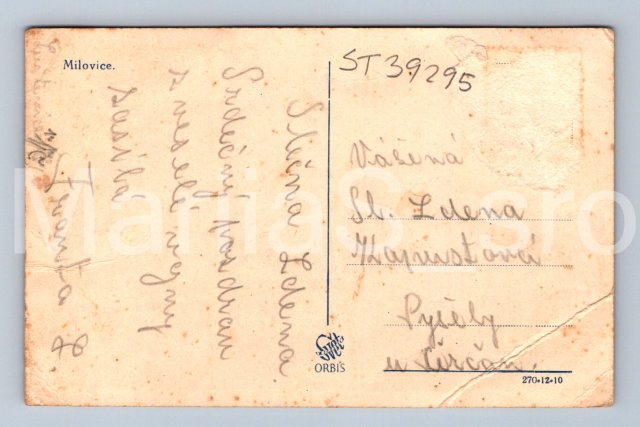 Milovice.
ST39295
Slečna Zdena
Srdečný pozdrav
z veselé vojny
zasílá
Franta
Vážená
Sl. Zdena
Kapustová
Pyšely
u Čerčan.
ORBIS
270-12-10